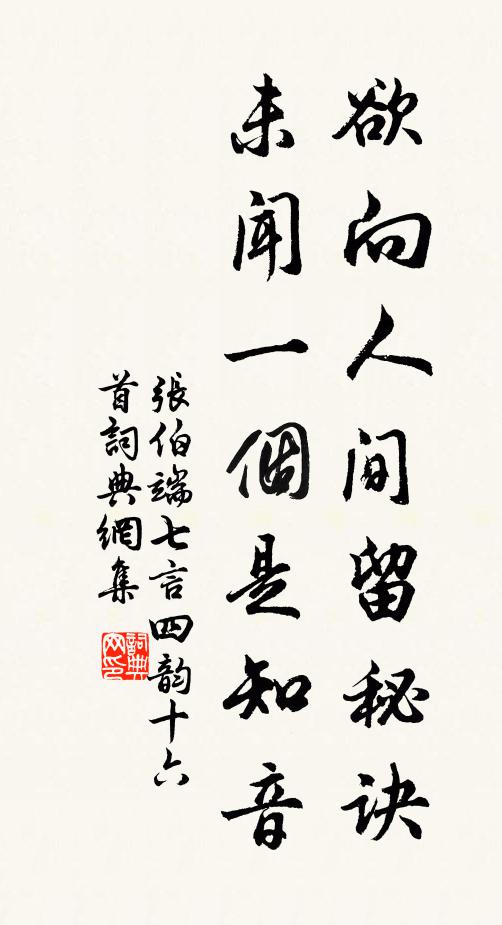 欲向人间留秘诀
未闻一個是知音
張伯端七言四韵十六
首詞典網集
詞典
网印